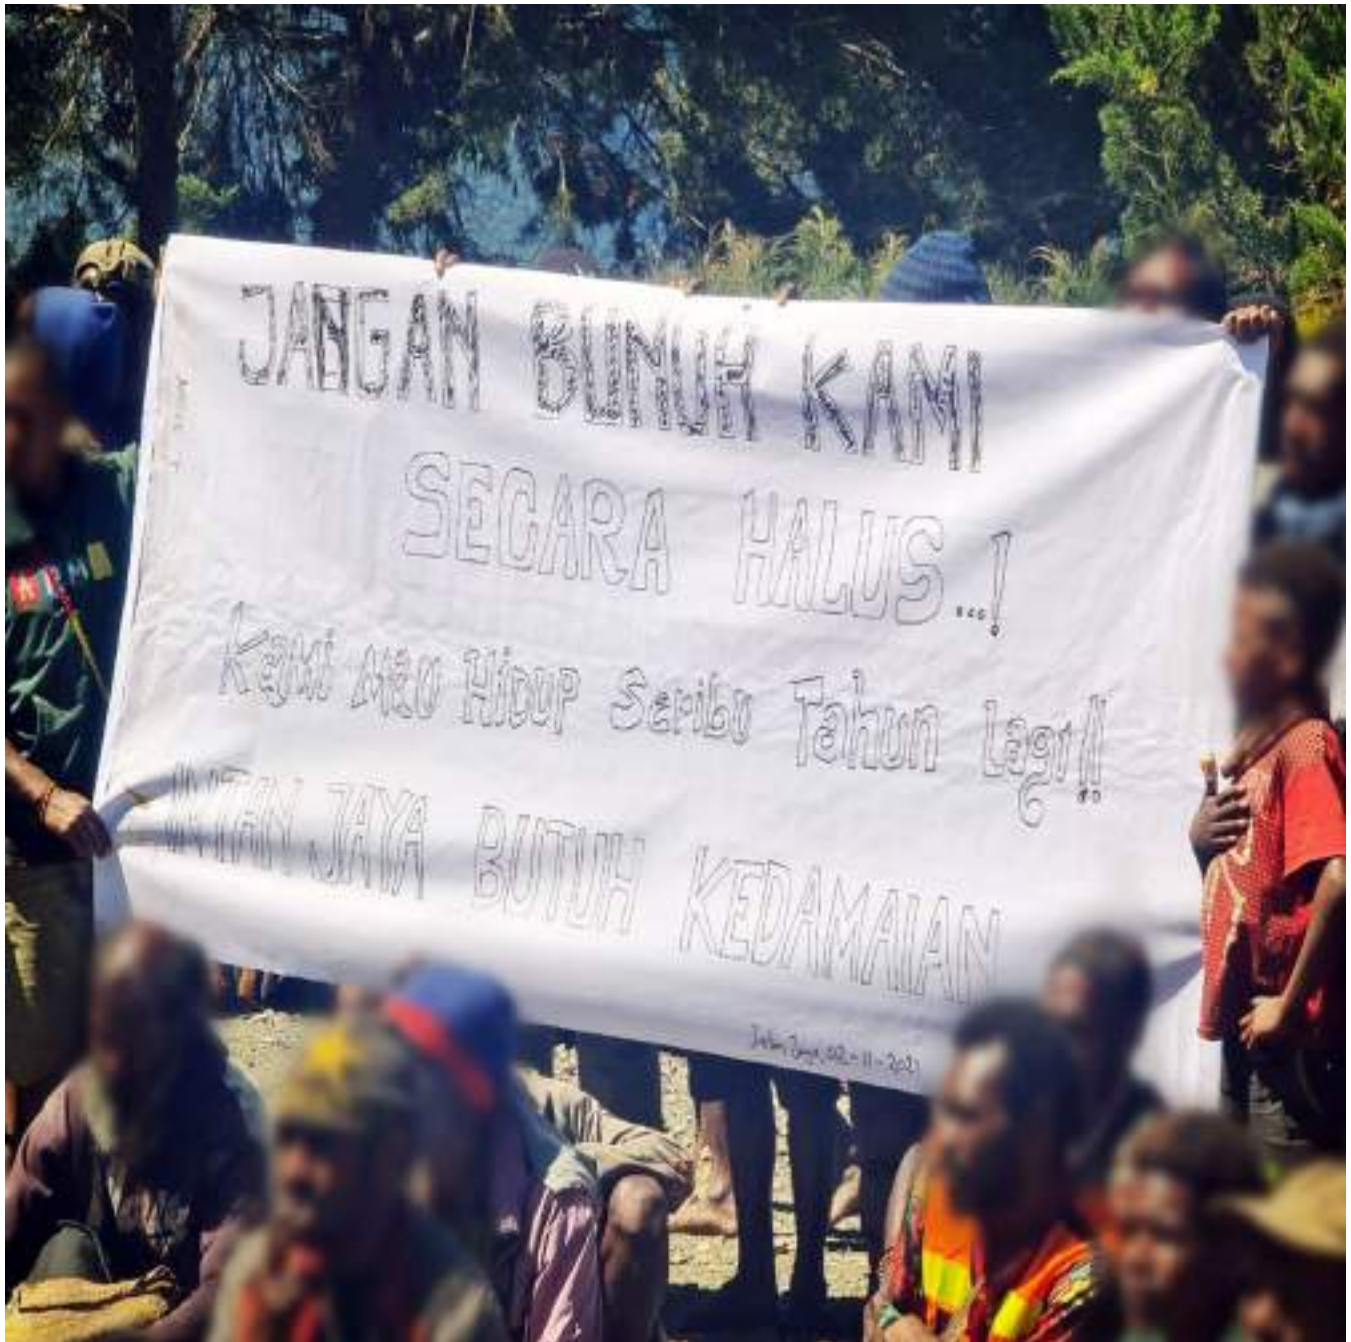 JANGAN BUNUH KAMI
SECARA HALUS...!
Kami Mau Hidup Seribu Tahun Lagi!!
INTAN JAYA BUTUH KEDAMAIAN
Intan Jaya, 02-11-2021